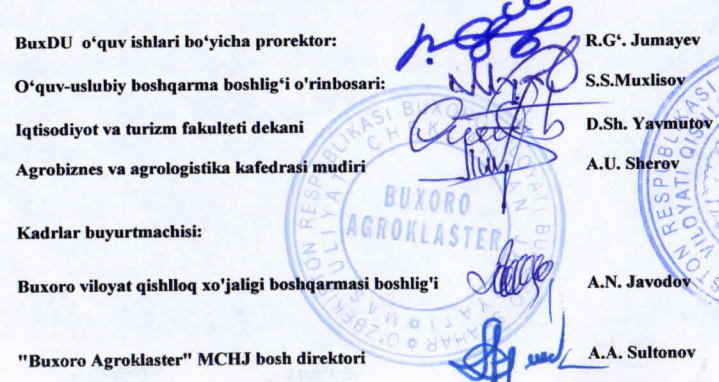 BuxDU o‘quv ishlari bo‘yicha prorektor: R.G‘. Jumayev
O‘quv-uslubiy boshqarma boshlig‘i o'rinbosari: S.S.Muxlisov
Iqtisodiyot va turizm fakulteti dekani D.Sh. Yavmutov
Agrobiznes va agrologistika kafedrasi mudiri A.U. Sherov
BUXORO
AGROKLASTER
Kadrlar buyurtmachisi:
Buxoro viloyat qishlloq xo'jaligi boshqarmasi boshlig'i A.N. Javodov
"Buxoro Agroklaster" MCHJ bosh direktori A.A. Sultonov